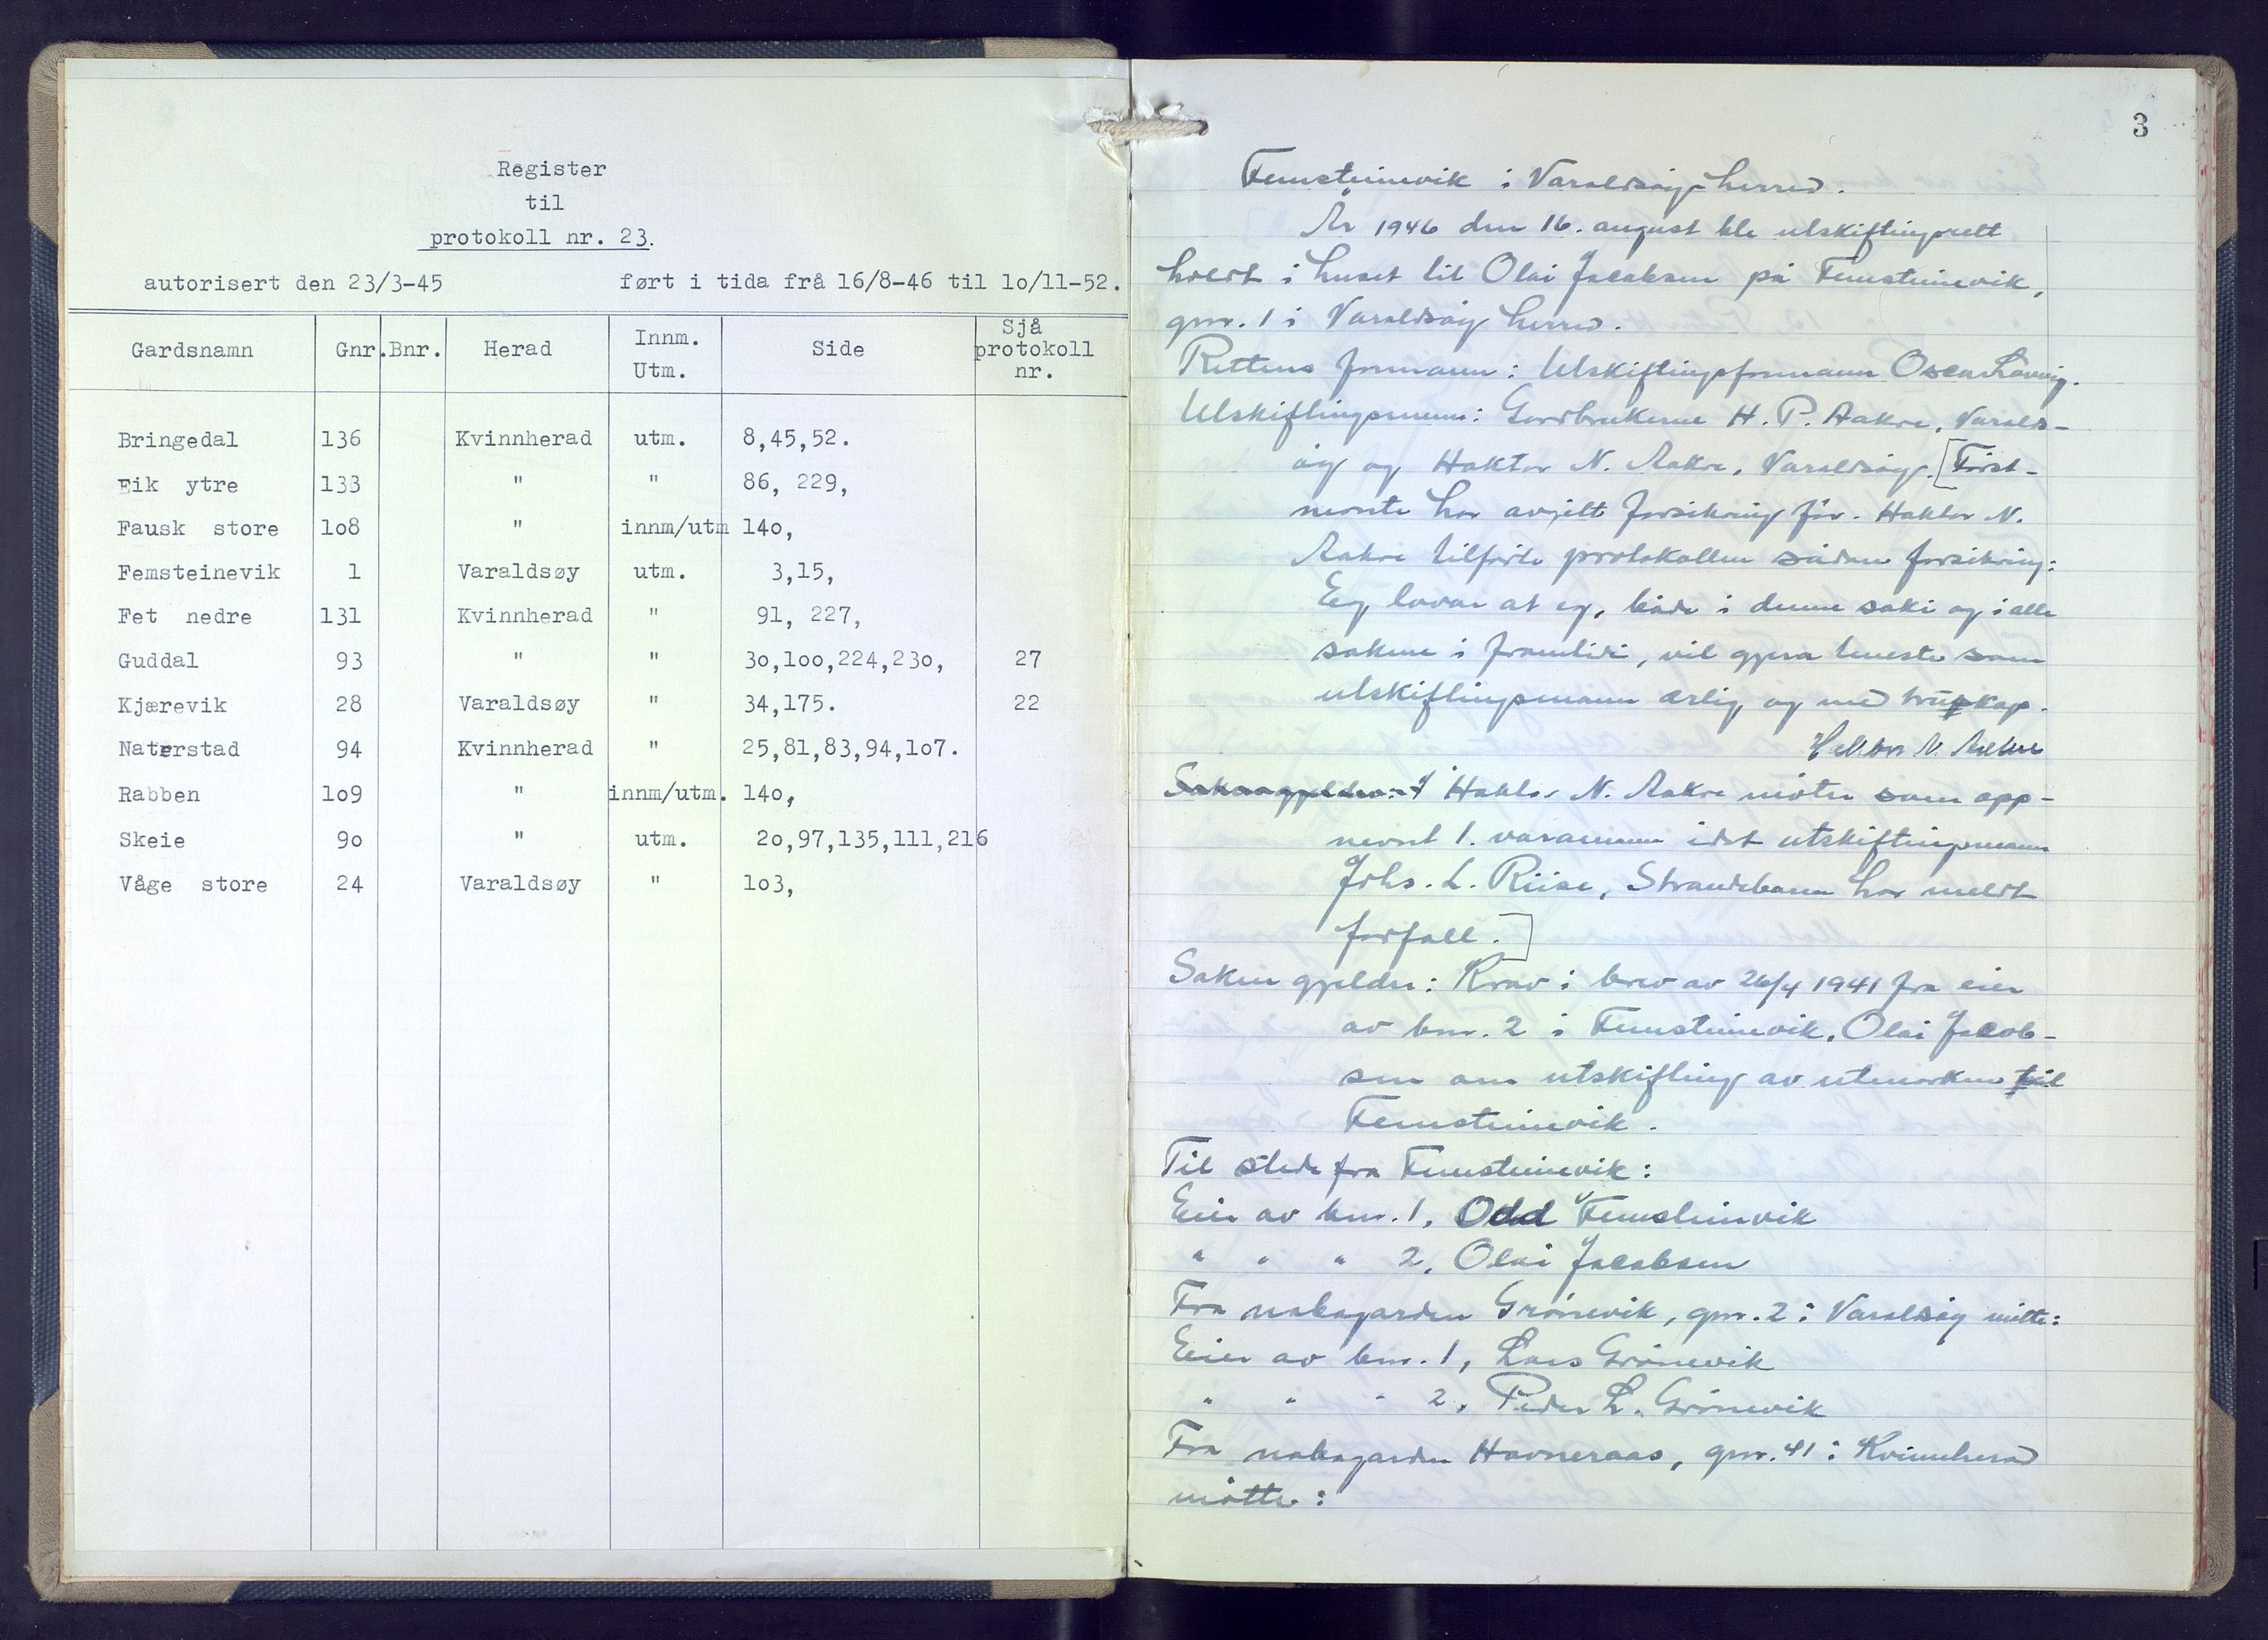 Register
til
protokoll nr. 23.
autorisert den 23/3-45 ført i tida frå 16/8-46 til 1o/11-52.
Gardsnamn Gnr. Bnr. Herad Innm. Utm. Side Sjå protokoll nr.
Bringedal 136 Kvinnherad utm. 8,45,52.
Eik ytre 133 " " 86, 229,
Fausk store 1o8 " innm/utm 14o,
Femsteinevik 1 Varaldsøy utm. 3,15,
Fet nedre 131 Kvinnherad " 91, 227,
Guddal 93 " " 3o,1oo,224,23o, 27
Kjærevik 28 Varaldsøy " 34,175. 22
Naterstad 94 Kvinnherad " 25,81,83,94,1o7.
Rabben 1o9 " innm/utm. 14o,
Skeie 9o " utm. 2o,97,135,111,216
Våge store 24 Varaldsøy " 1o3,
3
Femsteinevik i Varaldsøy herred.
År 1946 den 16. august ble utskiftingsrett
holdt i huset til Olai Jacobsen på Femsteinevik,
gnr. 1 i Varaldsøy herred.
Rettens formann: Utskiftingsformann Oscar Lovvig.
Utskiftingsmenn: Gardbrukerne H. P. Aakre, Varalds-
øy og Haktor N. Aakre, Varaldsøy. [Først-
nevnte har avgitt forsikring før. Haktor N.
Aakre tilførte protokollen sådan forsikring:
Eg lovar at eg, både i denne saki og i alle
sakene i framtidi, vil gjera teneste som
utskiftingsmann ærlig og med truskap.
Haktor N. Aakre
Saken gjelder: Haktor N. Aakre møter som opp-
nevnt 1. varamann idet utskiftingsmann
Johs. L. Riise, Strandebarm har meldt
forfall.]
Saken gjelder: Krav i brev av 26/4 1941 fra eier
av bnr. 2 i Femsteinevik, Olai Jacob-
sen om utskifting av utmarken til
Femsteinevik.
Til stede fra Femsteinevik:
Eier av bnr. 1, Odd Femsteinvik
" " " 2, Olai Jacobsen
Fra nabogarden Grønevik, gnr. 2 i Varaldsøy møtte:
Eier av bnr. 1, Lars Grønevik
" " " 2, Peder L. Grønevik
Fra nabogarden Havneraas, gnr. 41 i Kvinnherad
møtte: